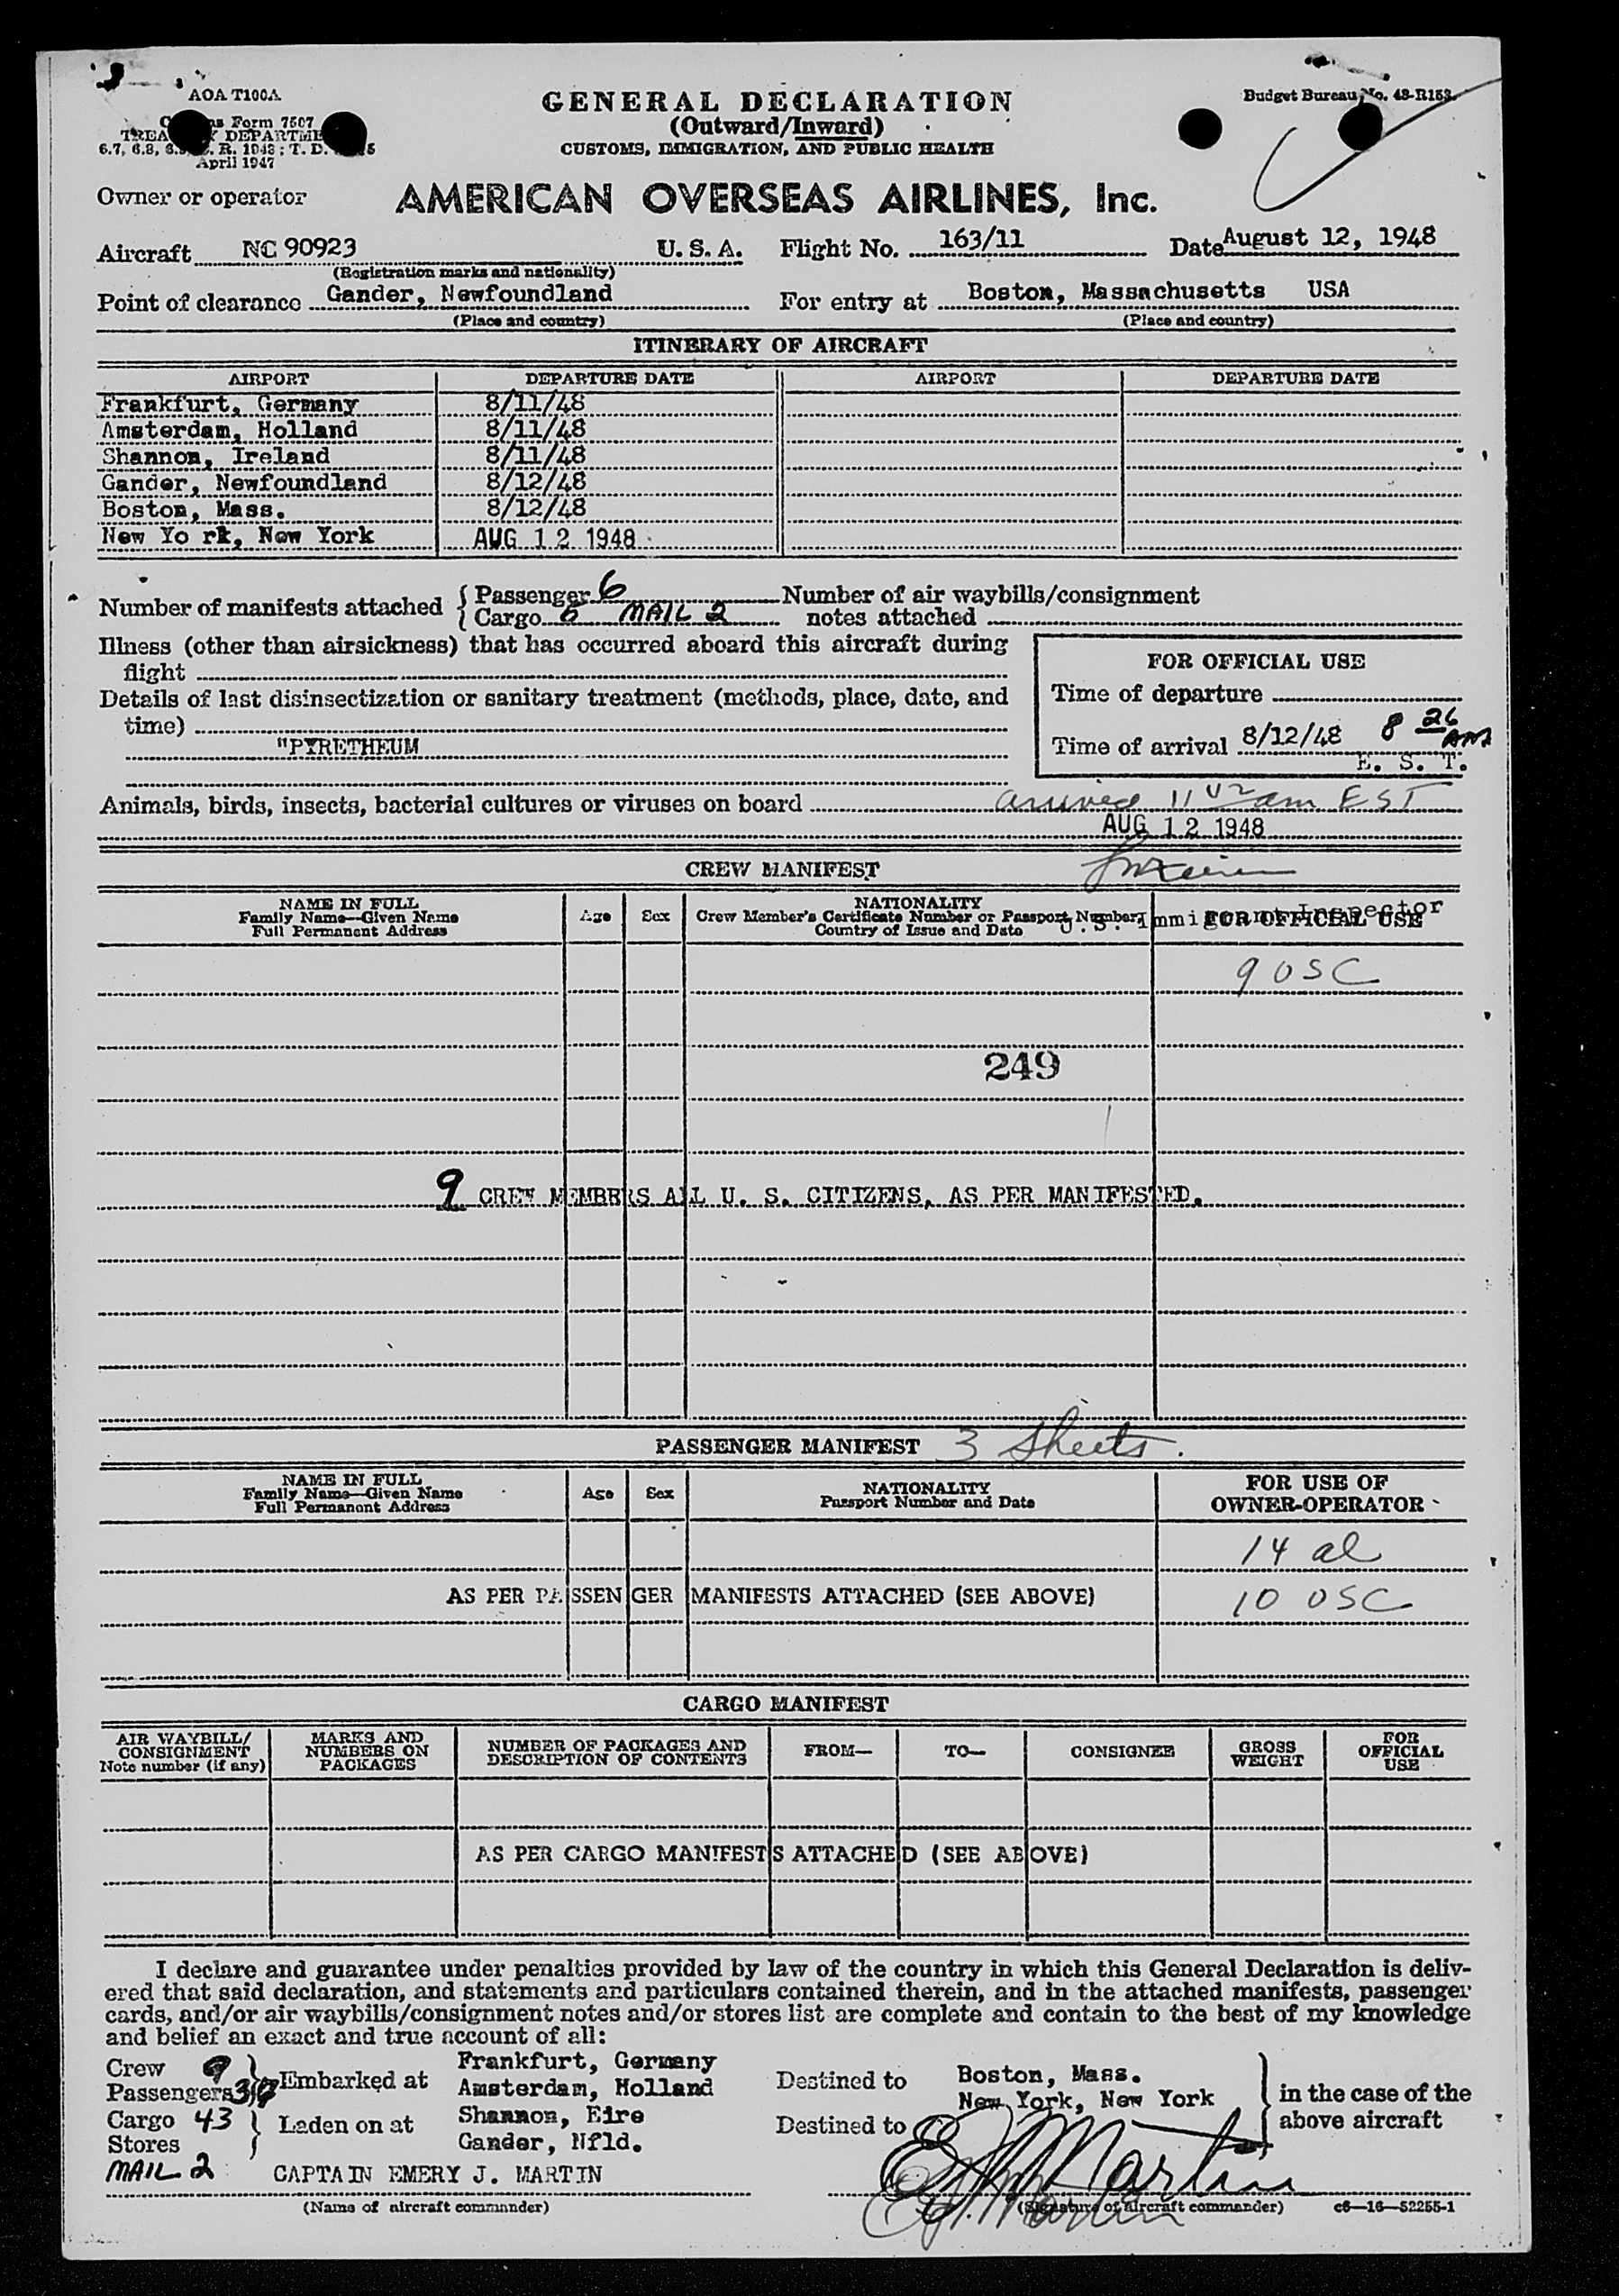 AOA T100A
GENERAL DECLARATION
Budget Bureau No. 48-R153.
Form 7507
(Outward/Inward)
6.7, 6.8,
CUSTOMS, IMMIGRATION, AND PUBLIC HEALTH
April 1947
Owner or operator AMERICAN OVERSEAS AIRLINES, Inc.
Aircraft NC 90923 U. S. A. Flight No. 163/11 Date August 12, 1948
(Registration marks and nationality)
Point of clearance Gander, Newfoundland For entry at Boston, Massachusetts USA
(Place and country) (Place and country)
ITINERARY OF AIRCRAFT
AIRPORT DEPARTURE DATE AIRPORT DEPARTURE DATE
Frankfurt, Germany 8/11/48
Amsterdam, Holland 8/11/48
Shannon, Ireland 8/11/48
Gander, Newfoundland 8/12/48
Boston, Mass. 8/12/48
New Yo rk, New York AUG 12 1948
Number of manifests attached { Passenger 6 Number of air waybills/consignment
Cargo 6 MAIL 2 notes attached
Illness (other than airsickness) that has occurred aboard this aircraft during
flight
FOR OFFICIAL USE
Details of last disinsectization or sanitary treatment (methods, place, date, and
time)
Time of departure
"PYRETHEUM
Time of arrival 8/12/48 8 26 AM
E. S. T.
Animals, birds, insects, bacterial cultures or viruses on board arrived 11 02 am EST
AUG 12 1948
CREW MANIFEST
NAME IN FULL
Family Name—Given Name
Full Permanent Address
Age Sex
NATIONALITY
Crew Member's Certificate Number or Passport Number,
Country of Issue and Date
U. S. Immigrant Inspector
FOR OFFICIAL USE
9 USC
249
9 CREW MEMBERS ALL U. S. CITIZENS, AS PER MANIFESTED.
PASSENGER MANIFEST 3 Sheets.
NAME IN FULL
Family Name—Given Name
Full Permanent Address
Age Sex
NATIONALITY
Passport Number and Date
FOR USE OF
OWNER-OPERATOR
14 al
AS PER PASSENGER MANIFESTS ATTACHED (SEE ABOVE) 10 USC
CARGO MANIFEST
AIR WAYBILL/
CONSIGNMENT
Note number (if any)
MARKS AND
NUMBERS ON
PACKAGES
NUMBER OF PACKAGES AND
DESCRIPTION OF CONTENTS
FROM— TO— CONSIGNEE
GROSS
WEIGHT
FOR
OFFICIAL
USE
AS PER CARGO MANIFESTS ATTACHED (SEE ABOVE)
I declare and guarantee under penalties provided by law of the country in which this General Declaration is deliv-
ered that said declaration, and statements and particulars contained therein, and in the attached manifests, passenger
cards, and/or air waybills/consignment notes and/or stores list are complete and contain to the best of my knowledge
and belief an exact and true account of all:
Crew 9
Passengers
Cargo 43
Stores
MAIL 2
Embarked at
Laden on at
Frankfurt, Germany
Amsterdam, Holland
Shannon, Eire
Gander, Nfld.
Destined to
Destined to
Boston, Mass.
New York, New York
in the case of the
above aircraft
CAPTAIN EMERY J. MARTIN
EJ Martin
EJ. Martin
(Name of aircraft commander) (Signature of aircraft commander) c6—16—52255-1